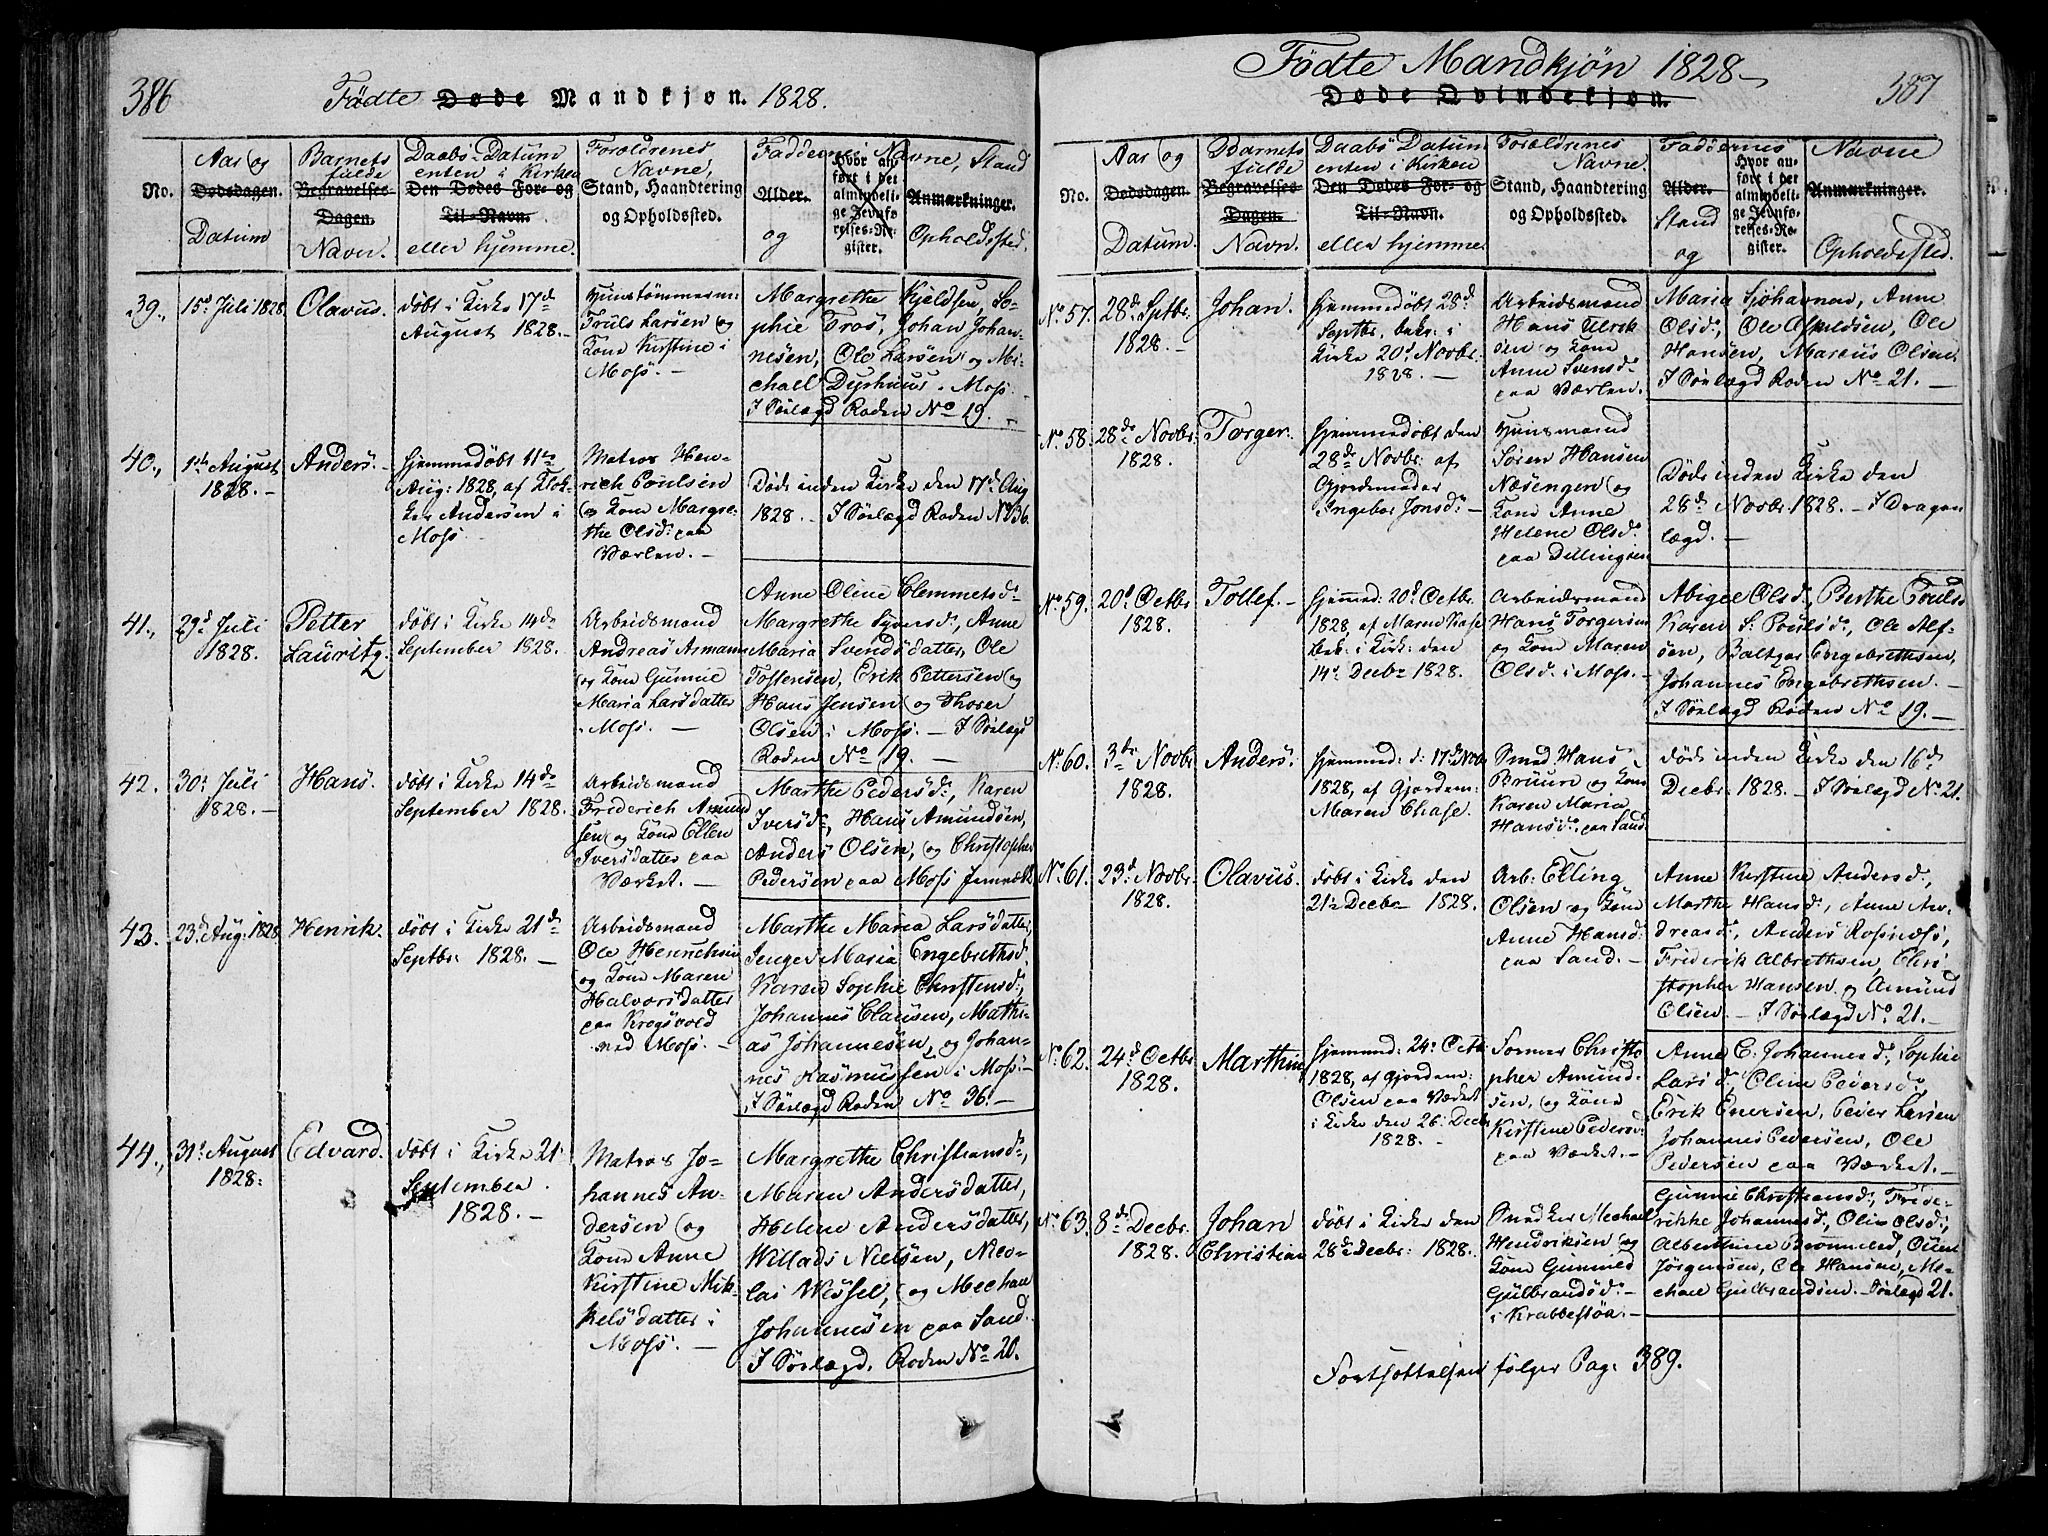 386
Fødte Døde Mandkjøn. 1828.
No.
Aar og
Dødsdagen.
Datum
Barnets
fulde
Begravelses-
Dagen.
Navn.
Daabs-Datum
enten i Kirken
Den Dødes For- og
Til-Navn.
eller hjemme.
Forældrenes
Navne,
Stand, Haandtering
og Opholdssted.
Faddernes Navne, Stand
Alder.
og
Hvor an-
ført i det
almindeli-
ge Jevnfø-
relses-Re-
gister.
Anmærkninger.
Opholdssted.
39.,
15d Juli 1828.
Olavus.
døbt i Kirke 17d
August 1828.-
Huustømmerm:
Truls Larsen og
Kone Kirstine i
Moss. -
Margrethe Kjeldsen, So-
phie Fros, Johan Johan-
nesen, Ole Larsen og Mi-
chael Dyphuus i Moss.
I Sørlægd Roden No 19. -
40.,
1ste August
1828. -
Anders. -
hjemmedøbt 11te
Aug: 1828, af Klok-
ker Andersen i
Moss. -
Matros Hen-
rich Poulsen
og Kone Margre-
the Olsd: paa
Værlen. -
Døde inden Kirke den 17d Aug
1828. - I Sørlægd Roden No 36.
41.,
29d Juli
1828.
Petter
Lauritz.
døbt i Kirke 14de
September 1828.
Arbeidsmand
Andreas Asmann
og Kone Gunnie
Maria Larsdatter
i Moss. -
Anne Oline Clemmetsd:
Margrethe Syversd:, Anne
Maria Svendsdatter, Ole
Tostensen, Erik Pettersen og
Hans Jensen og Thorer
Olsen i Moss. - I Sørlægd
Roden No 19. -
42.
30: Juli
1828. -
Hans.
døbt i Kirke 14de
September 1828.
Arbeidsmand
Friderich Amund
sen og Kone Ellen
Iversdatter paa
Værket. -
Marthe Pedersd:, Karen
Iversd:, Hans Amundsen,
Anders Olsen, og Christopher
Pedersen paa Moss Jernværk
43.
23d Aug: 1828
Henrik.
døbt i Kirke 21de
Septbr: 1828. -
Arbeidsmand
Ole Henrichsen
og Kone Maren
Halvorsdatter
paa Krogsvold
ved Moss. -
Marthe Maria Larsdatter,
Inger Maria Engebrethsd:
Karen Sophie Christensd:,
Johannes Clausen, Mathi-
as Johannesen, og Johan-
nes Rasmussen i Moss. -
I Sørlægd Roden No 36. -
44.,
31: August
1828.
Edvard.
døbt i Kirke 21:
September
1828. -
Matros Jo-
hannes An-
dersen og
Kone Anne
Kirstine Mik-
kelsdatter i
Moss. -
Margrethe Christiansd:,
Maren Andersdatter,
Helene Andersdatter,
Willads Nielsen, Nico-
lai Wessel, og Mechael
Johannesen paa Sand.
I Sørlægd. Roden No 20.
Fødte Mandkjøn 1828-
387
Døde Qvindekjøn.
No.
Aar og
Dødsdagen.
Datum.
Barnets
fulde
Begravelses-
Dagen.
Navn.
Daabs Datum
enten i Kirken
Den Dødes For- og
Til-Navn.
eller hjemme
Forældrenes
Navne.
Stand, Haandtering
og Opholdssted.
Faddernes Navne
Alder.
Stand
og
Hvor an-
ført i det
almindeli-
ge Jevnfø-
relses-Re-
gister.
Anmærkninger.
Opholdssted.
No 57.
28d Septbr:
1828. -
Johan.
hjemmedøbt 28d
Septbr. bekr: i
Kirke 20d Novbr:
1828. -
Arbeidsmand
Hans Ulrik
sen og Kone
Anne Svensd:
paa Værlen.
Maria Sjøhavnen, Anne
Olsd:, Ole Asmildsen, Ole
Hansen, Marcus Olsen.
I Sørlægd Roden No 21. -
No 58.
28de Novbr:
1828.
Torger.
hjemmedøbt den
28de Novbr: af
Gjordemoder
Ingebor Jonsd: -
Huusmand
Søren Hansen
Næsengen og
Kone Anne
Helene Olsd:
paa Dellingsen
Døde inden Kirke den
28d Novbr. 1828. - I Dragon
lægd. -
No 59.
20d Octbr
1828.
Tollef. -
hjemmed: 20d Octbr.
1828, af Maren Chase
bek: i Kirk: den
14d Decbr 1828.
Arbeidsmand
Hans Torgersen
og Kone Maren
Olsd: i Moss. -
Abigel Olsd:, Berthe Pouls
Karen S: Poulsd:, Ole Alf-
sen, Baltzer Engebrethsen,
Johannes Engebrethsen. -
I Sørlægd Roden No 19. -
No 60.
3de Novbr
1828.
Anders.
hjemmed: d: 17de Nov
1828, af Gjordem:
Maren Chase.
Smed Hans
Bruun og Kone
Karen Maria
Hansd: paa Sand.
døde inden Kirke den 16d
Decbr: 1828. - I Sørlægd No 21.
No 61.
23d Novbr.
1828.
Olavus.
døbt i Kirke den
21: Decbr 1828.
Arb: Elling
Olsen og Kone
Anne Hansd:
paa Sand. -
Anne Kirstine Andersd:,
Marthe Hansd:, Anne An-
dreasd:, Anders Rossnæs,
Friderik Albrethsen, Chri-
stopher Hansen og Amund
Olsen. - I Sørlægd No 21. -
No 62.
24d Octbr
1828.
Marthin
hjemmed: 24: Octb:
1828, af Gjordem:
Olsen paa Værket
i Kirke den 26: Decb
1828. -
Former Christo
pher Amund-
sen, og Kone
Kirstine Pedersd:
paa Værket. -
Anne C: Johannesd:, Sophie
Larsd:, Oline Pedersd:,
Erik Enersen, Peder Larsen
Johannes Pedersen, Ole
Pedersen paa Værket. -
No 63.
8de Decbr.
1828.
Johan
Christian
døbt i Kirke den
28de Decbr: 1828.
Snedker Mechael
Hendriksen og
Kone Gunnild
Gulbrandsd: -
i Krabbestøa. -
Gunnie Christiansd:, Fride-
rikke Johannesd:, Oline Olsd:,
Alberthine Brønneld, Ouen
Jørgensen, Ole Hansen, Me-
chael Gulbrandsen. Sørlægd 21.
Fortsættelsen følger Pag: 389.